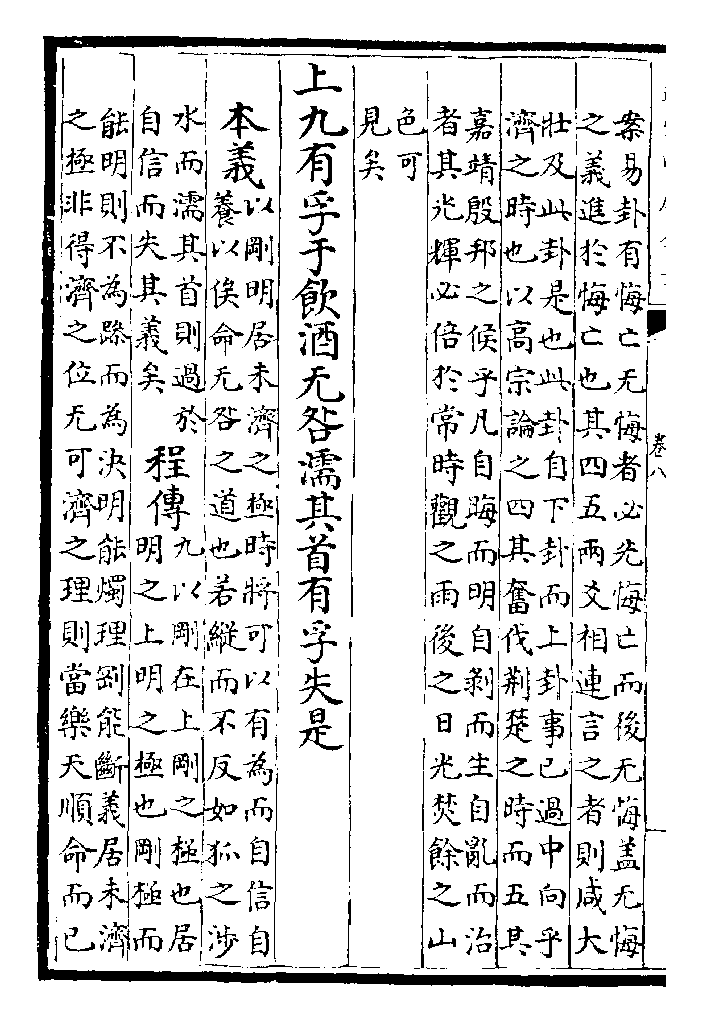 案易卦有悔亡无悔者必先悔亡而後无悔蓋无悔
之義進於悔亡也其四五兩爻相連言之者則咸大
壯及此卦是也此卦自下卦而上卦事已過中向乎
濟之時也以高宗論之四其奮伐荆楚之時而五其
嘉靖殷邦之候乎凡自晦而明自剥而生自亂而治
者其光輝必倍於常時觀之雨後之日光焚餘之山
色可
見矣
上九有孚于飲酒无咎濡其首有孚失是
本義以剛明居未濟之極時將可以有為而自信自
養以俟命无咎之道也若縱而不反如狐之涉
水而濡其首則過於
自信而失其義矣
程傳九以剛在上剛之極也居
明之上明之極也剛極而
能明則不為躁而為決明能燭理剛能斷義居未濟
之極非得濟之位无可濟之理則當樂天順命而已
卷八